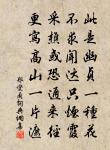 此是幽貞一種花
不求聞達只煙霞
采樵或恐通來徑
更寫高山一片遮